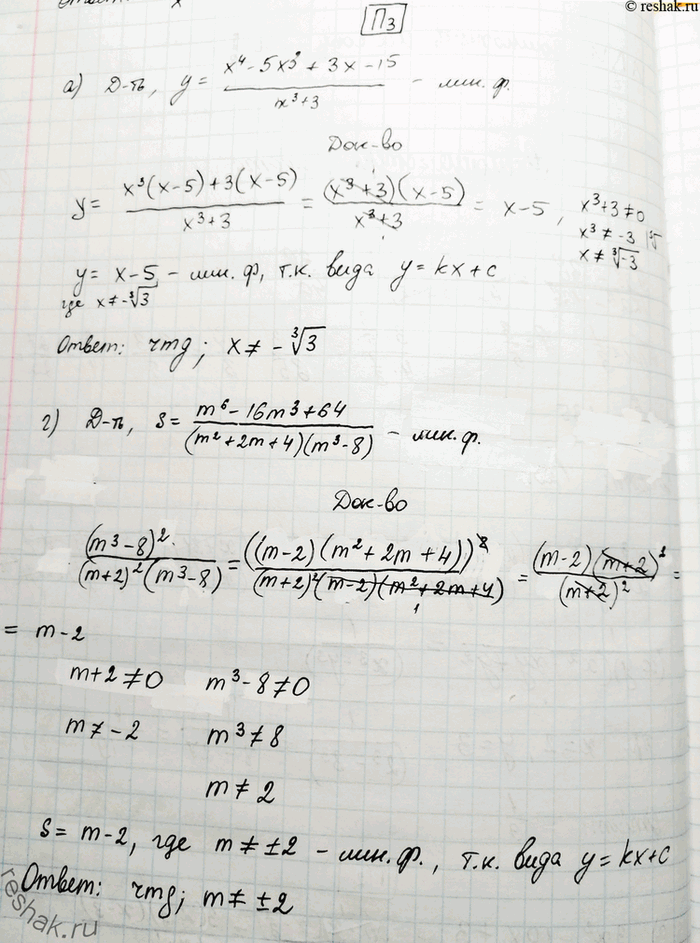 © reshak.ru
П3
а) Д-ть, y = (x⁴ - 5x³ + 3x - 15)/(x³ + 3) - лин. ф.
Док-во
y = (x³(x-5) + 3(x-5))/(x³+3) = ((x³+3)(x-5))/(x³+3) = x-5, x³+3≠0
x³ ≠ -3 | ∛
x ≠ ∛-3
y = x-5 - лин. ф, т.к. вида y = kx + c
где x ≠ -∛3
Ответ: чтд; x ≠ -∛3
г) Д-ть, s = (m⁶ - 16m³ + 64)/((m² + 2m + 4)(m³ - 8)) - лин. ф.
Док-во
(m³-8)²/((m+2)²(m³-8)) = ((m-2)(m²+2m+4))²/((m+2)²(m-2)(m²+2m+4)) = ((m-2)(m+2)²)/(m+2)² =
= m-2
m+2 ≠ 0 m³-8 ≠ 0
m ≠ -2 m³ ≠ 8
m ≠ 2
s = m-2, где m ≠ ±2 - лин. ф., т.к. вида y = kx + c
Ответ: чтд; m ≠ ±2
reshak.ru